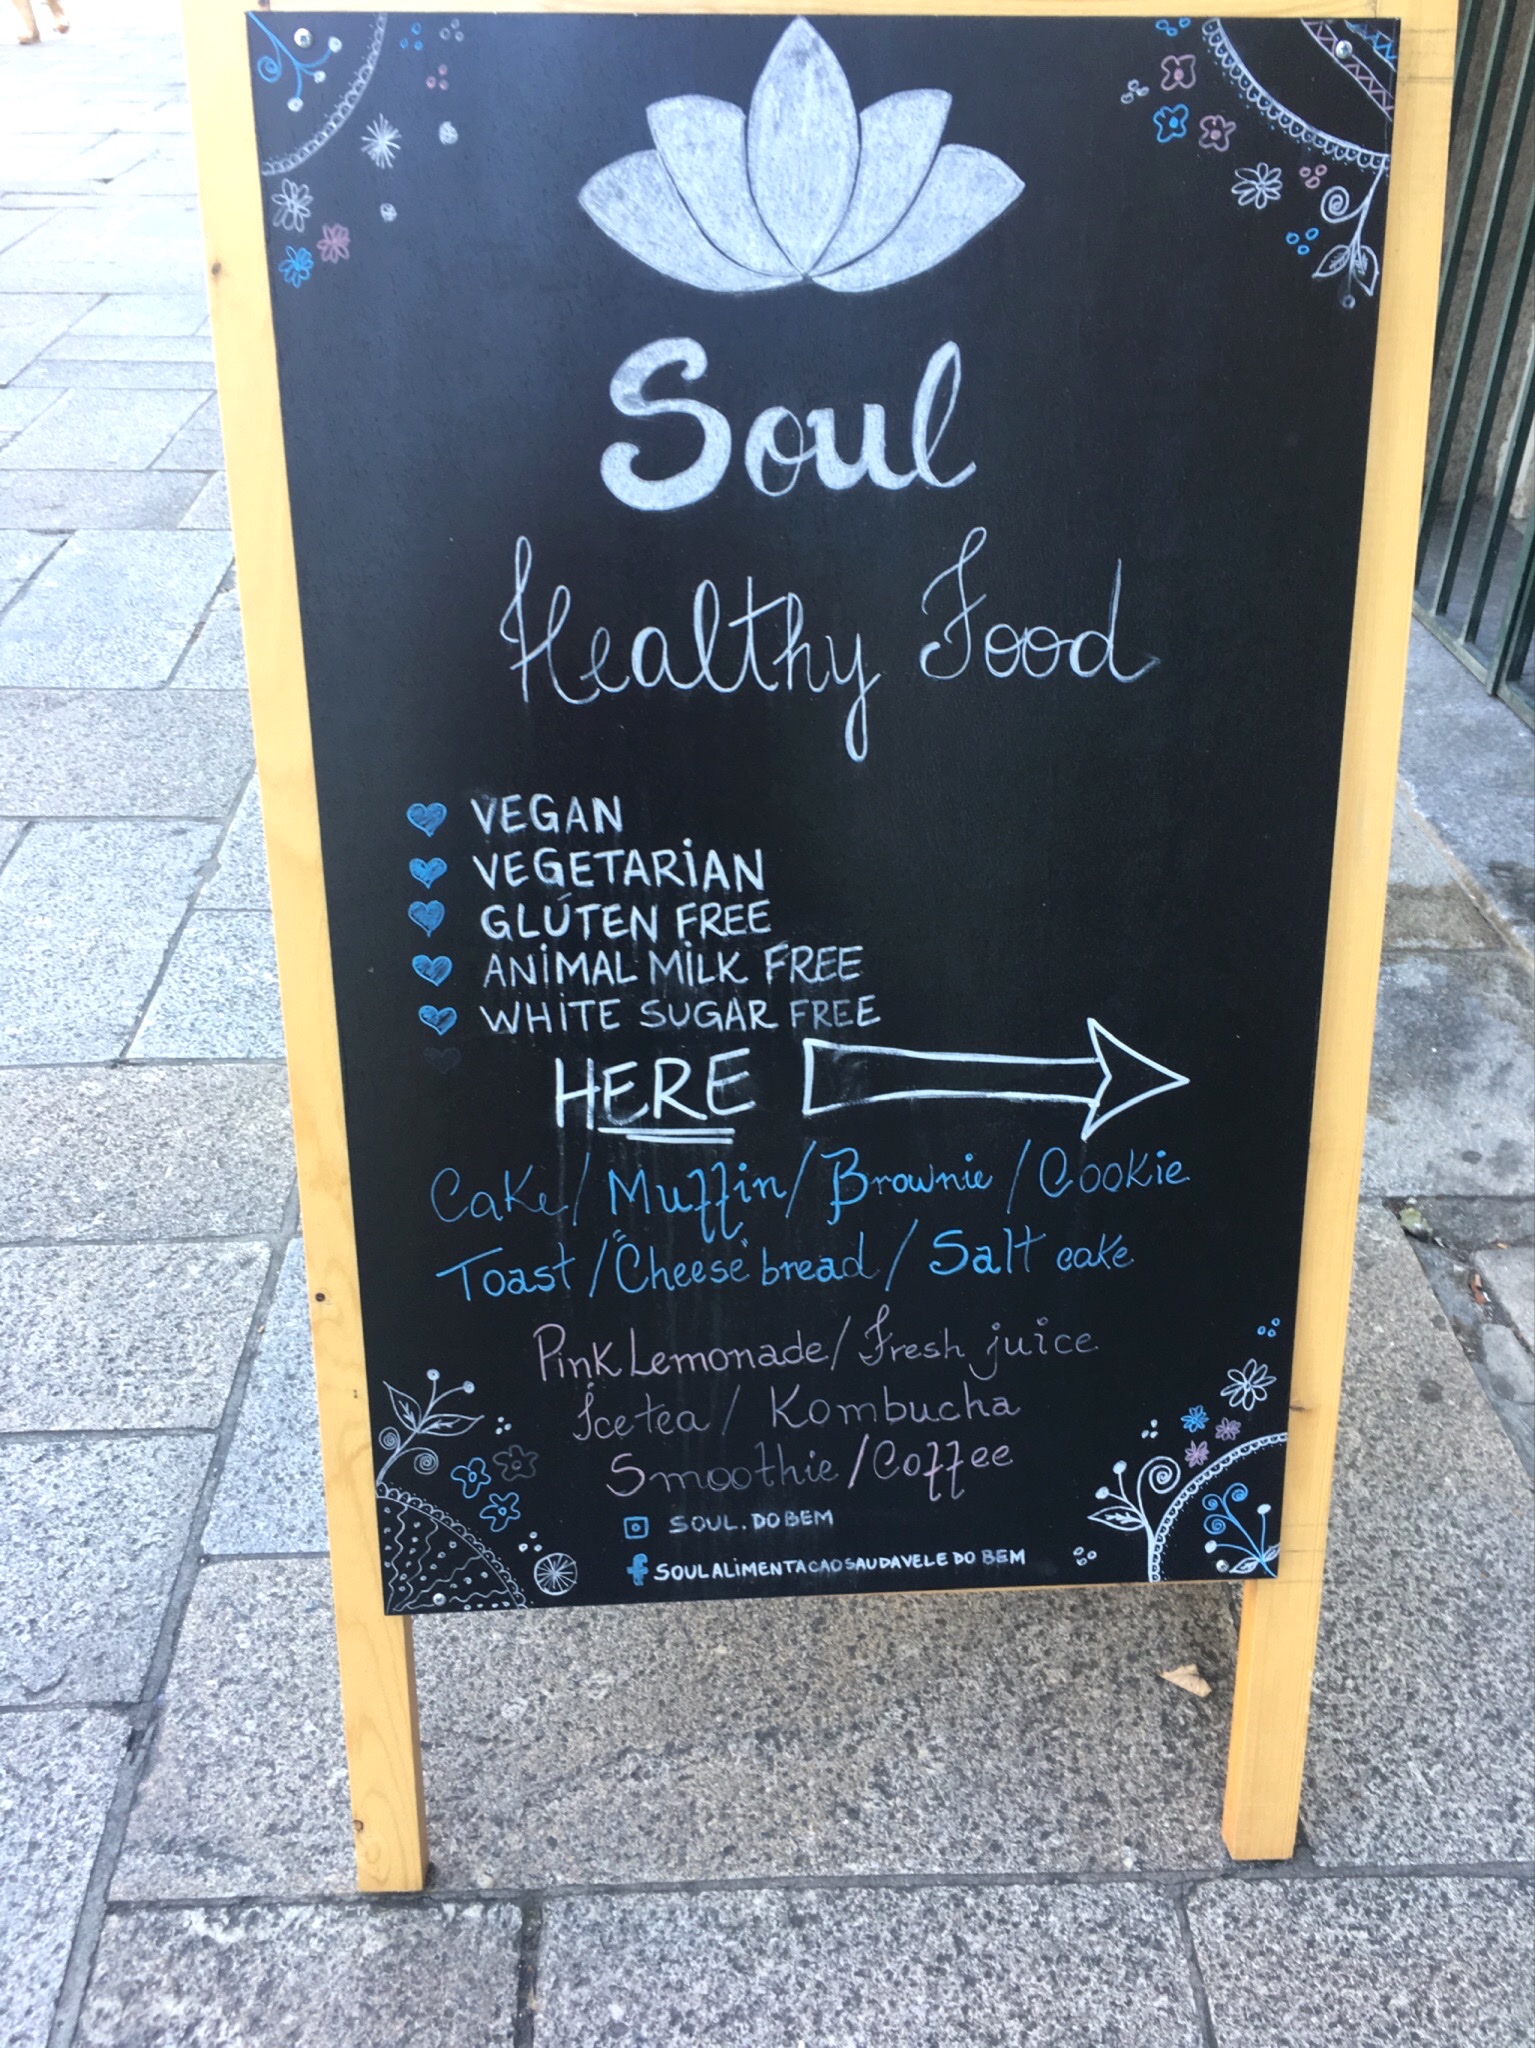 Soul
Healthy Food
VEGAN
VEGETARIAN
GLÚTEN FREE
ANIMAL MILK FREE
WHITE SUGAR FREE
HERE
Cake / Muffin / Brownie / Cookie
Toast / "Cheese" bread / Salt cake
Pink Lemonade / Fresh juice
Ice tea / Kombucha
Smoothie / Coffee
SOUL.DOBEM
SOULALIMENTACAOSAUDAVELEDO BEM